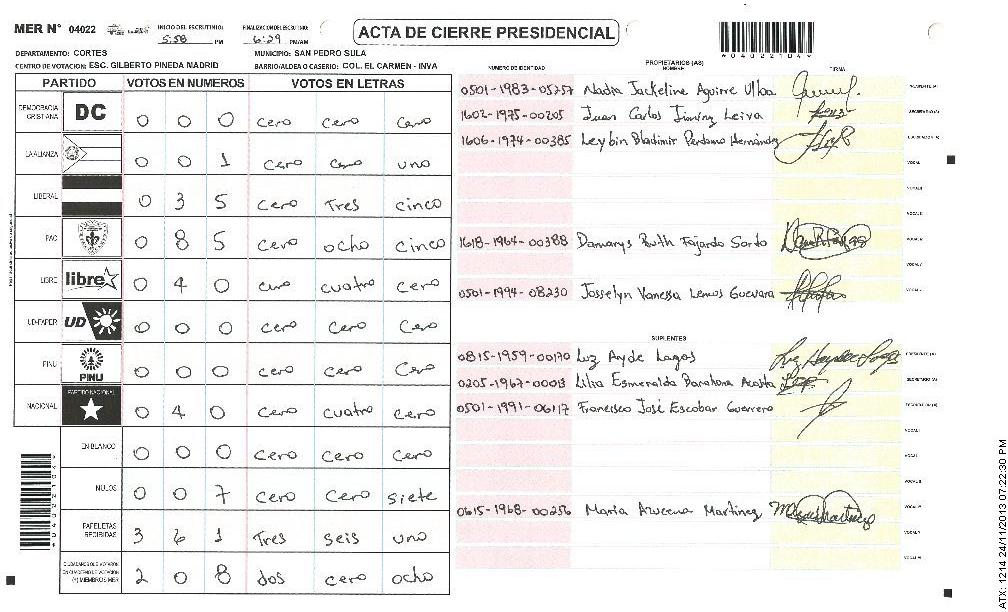 MER N° 04022
INICIO DEL ESCRUTINIO: 5:58 PM
FINALIZACION DEL ESCRUTINIO: 6:29 PM/AM
ACTA DE CIERRE PRESIDENCIAL
04022104
DEPARTAMENTO: CORTES
MUNICIPIO: SAN PEDRO SULA
CENTRO DE VOTACIÓN: ESC. GILBERTO PINEDA MADRID
BARRIO/ALDEA O CASERIO: COL. EL CARMEN - INVA
PARTIDO VOTOS EN NUMEROS VOTOS EN LETRAS
DEMOCRACIA CRISTIANA DC 0 0 0 cero cero cero
LA ALIANZA 0 0 1 cero cero uno
LIBERAL 0 3 5 cero Tres cinco
PAC 0 8 5 cero ocho cinco
LIBRE libre 0 4 0 cuatro cero
UD-FAPER UD 0 0 0 cero cero cero
PINU PINU 0 0 0 cero cero cero
NACIONAL PARTIDO NACIONAL 0 4 0 cero cuatro cero
EN BLANCO 0 0 0 cero cero cero
NULOS 0 0 7 cero cero siete
PAPELETAS RECIBIDAS 3 6 1 Tres seis uno
CIUDADANOS QUE VOTARON EN CUADERNO DE VOTACION (+) MIEMBROS MER 2 0 8 dos cero ocho
NUMERO DE IDENTIDAD PROPIETARIOS (AS) NOMBRE FIRMA
0501-1983-05257 Nadia Jackeline Aguirre Ulloa
1602-1975-00205 Juan Carlos Jiminez Leiva
1606-1974-00385 Leybin Bladimir Perdomo Hernández
1618-1964-00388 Damarys Ruth Fajardo Sordo
0501-1994-08230 Josselyn Vanessa Lemus Guevara
SUPLENTES
0815-1959-00170 Luz Ayde Lagos
0205-1967-00013 Lilia Esmeralda Barahona Acosta
0501-1991-06117 Francisco José Escobar Guerrero
0615-1968-00256 Maria Azucena Martinez
ATX: 1214 24/11/2013 07:22:30 PM